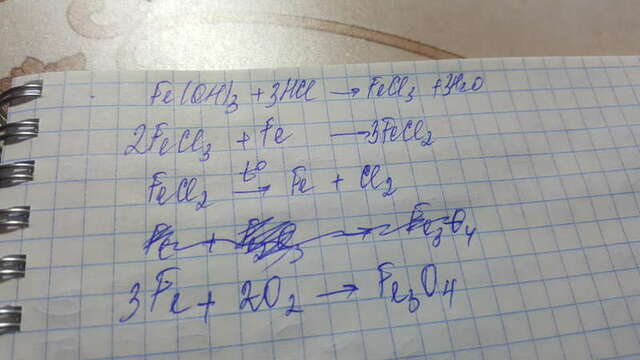 Fe(OH)3 + 3HCl → FeCl3 + 3H2O
2FeCl3 + Fe → 3FeCl2
FeCl2 t° → Fe + Cl2
3Fe + 2O2 → Fe3O4